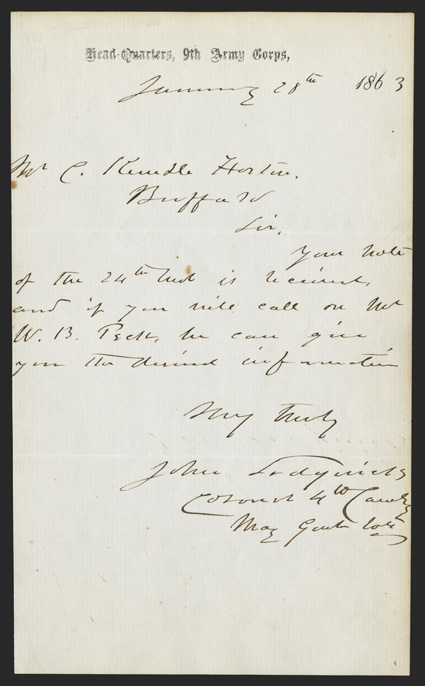 Head-Quarters, 9th Army Corps,
January 28th 1863
Mr C.
Buffalo
Sir,
Your note
of the 24th Inst is received,
and if you will call on Mr
W. B. Peck, he can give
you the desired information
Very truly
John Sedgwick
Colonel 4th Cavalry
Maj Genl Vols